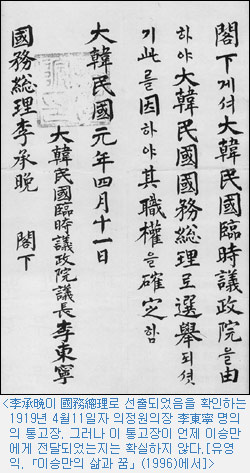 閣下게셔大韓民國臨時議政院을由
하야大韓民國國務総理로選擧되셧
기此를因하야其職權을確定함
大韓民國元年四月十一日
大韓民國臨時議政院議長李東寧
國務総理李承晩 閣下
<李承晩이 國務總理로 선출되었음을 확인하는
1919년 4월11일자 의정원의장 李東寧 명의
의 통고장. 그러나 이 통고장이 언제 이승만
에게 전달되었는지는 확실하지 않다.[유영
익, 「이승만의 삶과 꿈」(1996)에서]>